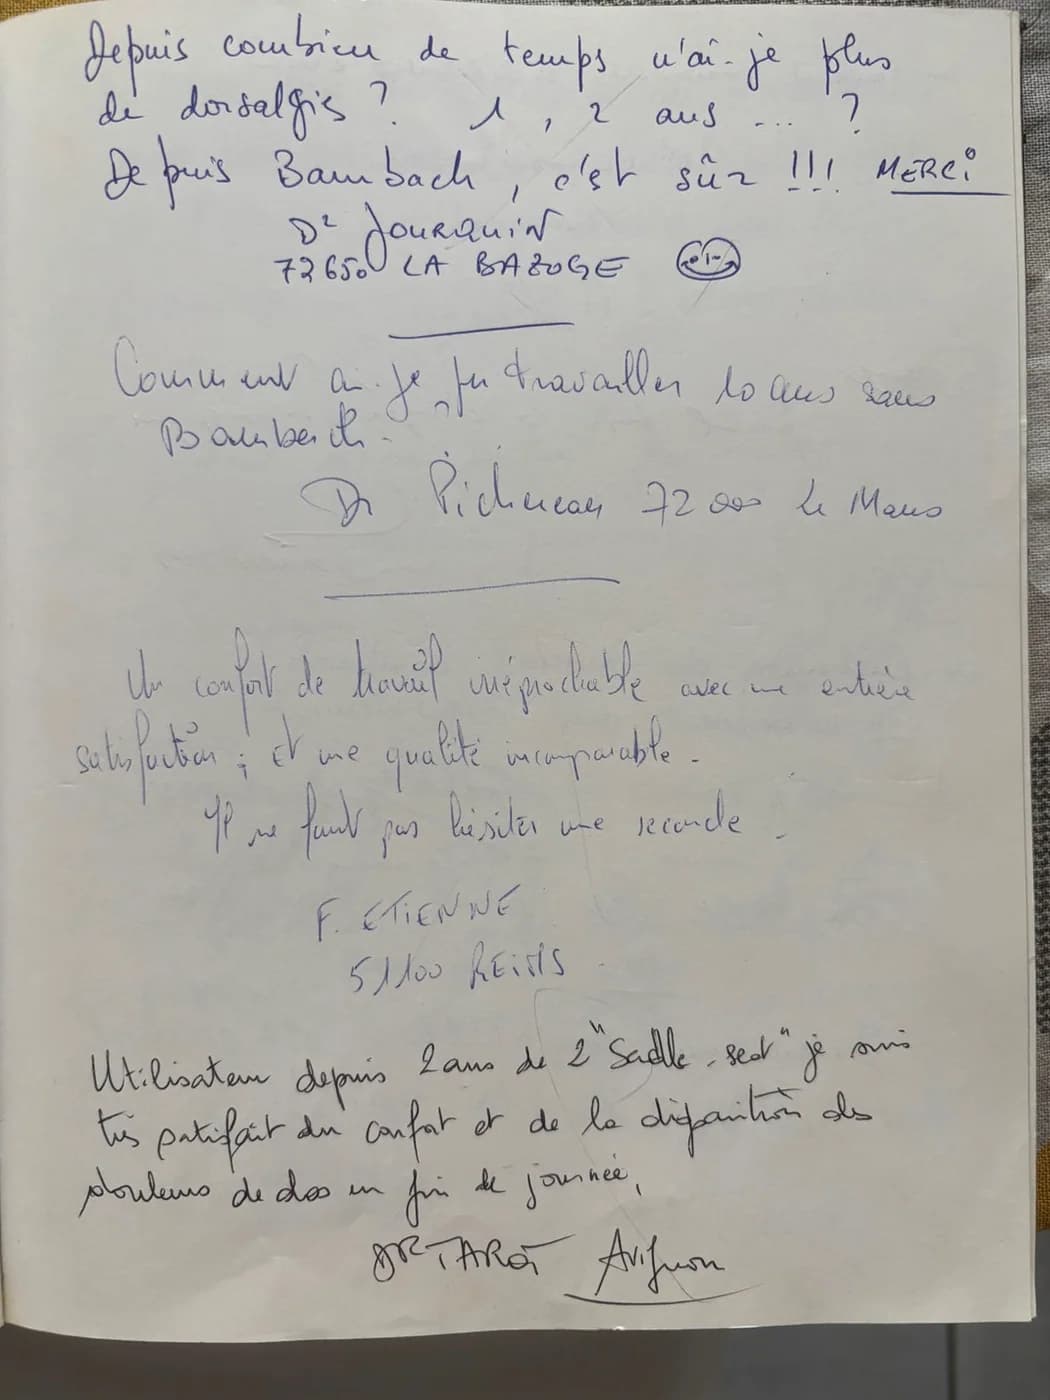 Depuis combien de temps n'ai-je plus
de dorsalgies ? 1, 2 ans ... ?
Depuis Bambach, c'est sûr !!! MERCi
Dr JOURQUIN
72650 LA BAZOGE
Comment ai-je pu travailler 10 ans sans
Bambach.
Dr Pichereau 72000 Le Mans
Un confort de travail irréprochable avec une entière
satisfaction ; et une qualité incomparable.
Il ne faut pas hésiter une seconde.
F. ETIENNE
51100 REIMS
Utilisateur depuis 2 ans de 2 "Sadle-seat" je suis
très satisfait du confort et de la disparition des
douleurs de dos en fin de journée,
DR Avignon